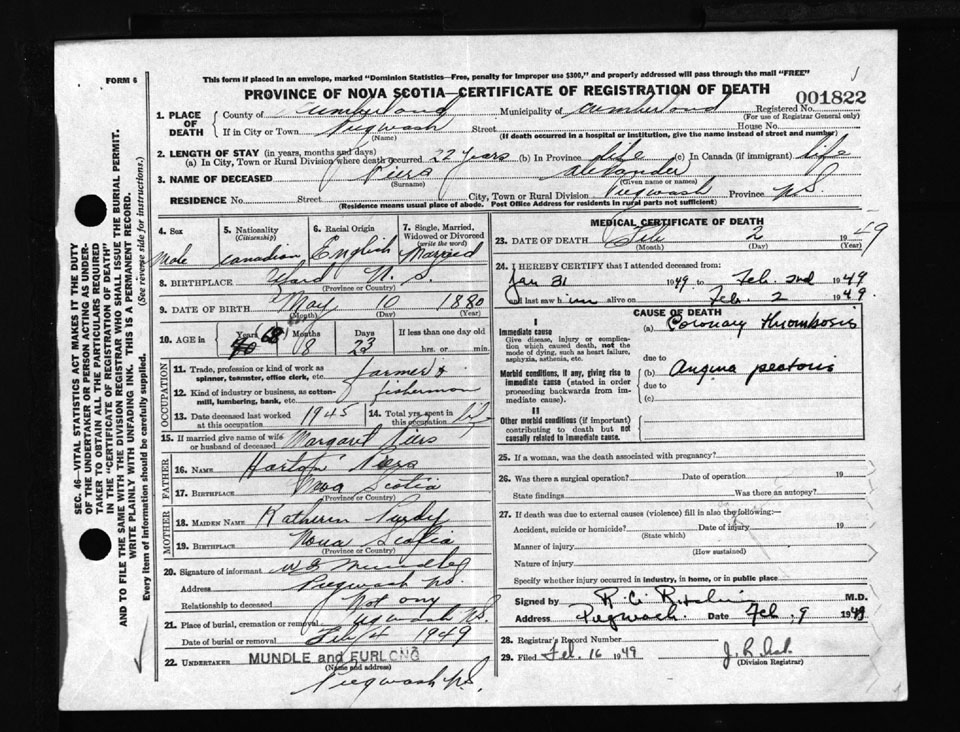 FORM 6
This form if placed in an envelope, marked "Dominion Statistics—Free, penalty for improper use $300," and properly addressed will pass through the mail "FREE"
PROVINCE OF NOVA SCOTIA—CERTIFICATE OF REGISTRATION OF DEATH
001822
1. PLACE OF DEATH
County of Cumberland Municipality of Cumberland Registered No.
(For use of Registrar General only)
If in City or Town Pugwash Street House No.
(Name) (If death occurred in a hospital or institution, give the name instead of street and number)
2. LENGTH OF STAY (in years, months and days)
(a) In City, Town or Rural Division where death occurred 22 years (b) In Province life (c) In Canada (if immigrant) life
3. NAME OF DECEASED Piers Alexander
(Surname) (Given name or names)
RESIDENCE No. Street City, Town or Rural Division Pugwash Province N.S.
(Residence means usual place of abode. Post Office Address for residents in rural parts not sufficient)
4. Sex Male
5. Nationality (Citizenship) Canadian
6. Racial Origin English
7. Single, Married, Widowed or Divorced (write the word) Married
8. BIRTHPLACE N. S.
(Province or Country)
9. DATE OF BIRTH May 10 1880
(Month) (Day) (Year)
10. AGE in Years 68 Months 8 Days 23 If less than one day old hrs. or min.
OCCUPATION
11. Trade, profession or kind of work as spinner, teamster, office clerk, etc. farmer &
12. Kind of industry or business, as cotton-mill, lumbering, bank, etc. fisherman
13. Date deceased last worked at this occupation 1945
14. Total yrs. spent in this occupation life
15. If married give name of wife or husband of deceased Margaret Piers
FATHER
16. NAME Piers
17. BIRTHPLACE Nova Scotia
(Province or Country)
MOTHER
18. MAIDEN NAME Katherin Purdy
19. BIRTHPLACE Nova Scotia
(Province or Country)
20. Signature of informant Mundle
Address Pugwash N.S.
Relationship to deceased Not any
21. Place of burial, cremation or removal Pugwash N.S.
Date of burial or removal Feb 4 1949
22. UNDERTAKER MUNDLE and FURLONG
(Name and address)
Pugwash N.S.
MEDICAL CERTIFICATE OF DEATH
23. DATE OF DEATH Feb 2 1949
(Month) (Day) (Year)
24. I HEREBY CERTIFY that I attended deceased from:
Jan 31 1949 to Feb. 2nd 1949
and last saw him alive on Feb. 2 1949.
CAUSE OF DEATH
I
Immediate cause
Give disease, injury or complication which caused death, not the mode of dying, such as heart failure, asphyxia, asthenia, etc.
(a) Coronary thrombosis
due to
Morbid conditions, if any, giving rise to immediate cause (stated in order proceeding backwards from immediate cause).
(b) Angina pectoris
due to
(c)
II
Other morbid conditions (if important) contributing to death but not causally related to immediate cause.
25. If a woman, was the death associated with pregnancy?
26. Was there a surgical operation? Date of operation 19
State findings Was there an autopsy?
27. If death was due to external causes (violence) fill in also the following:—
Accident, suicide or homicide? Date of injury 19
(State which)
Manner of injury
(How sustained)
Nature of injury
Specify whether injury occurred in industry, in home, or in public place
Signed by R. C. M.D.
Address Pugwash. Date Feb. 9 1949
28. Registrar's Record Number
29. Filed Feb. 16 1949
(Division Registrar)
SEC. 46—VITAL STATISTICS ACT MAKES IT THE DUTY
OF THE UNDERTAKER OR PERSON ACTING AS UNDER-
TAKER TO OBTAIN ALL THE PARTICULARS REQUIRED
IN THE "CERTIFICATE OF REGISTRATION OF DEATH"
AND TO FILE THE SAME WITH THE DIVISION REGISTRAR WHO SHALL ISSUE THE BURIAL PERMIT.
WRITE PLAINLY WITH UNFADING INK. THIS IS A PERMANENT RECORD.
Every item of information should be carefully supplied. (See reverse side for instructions.)